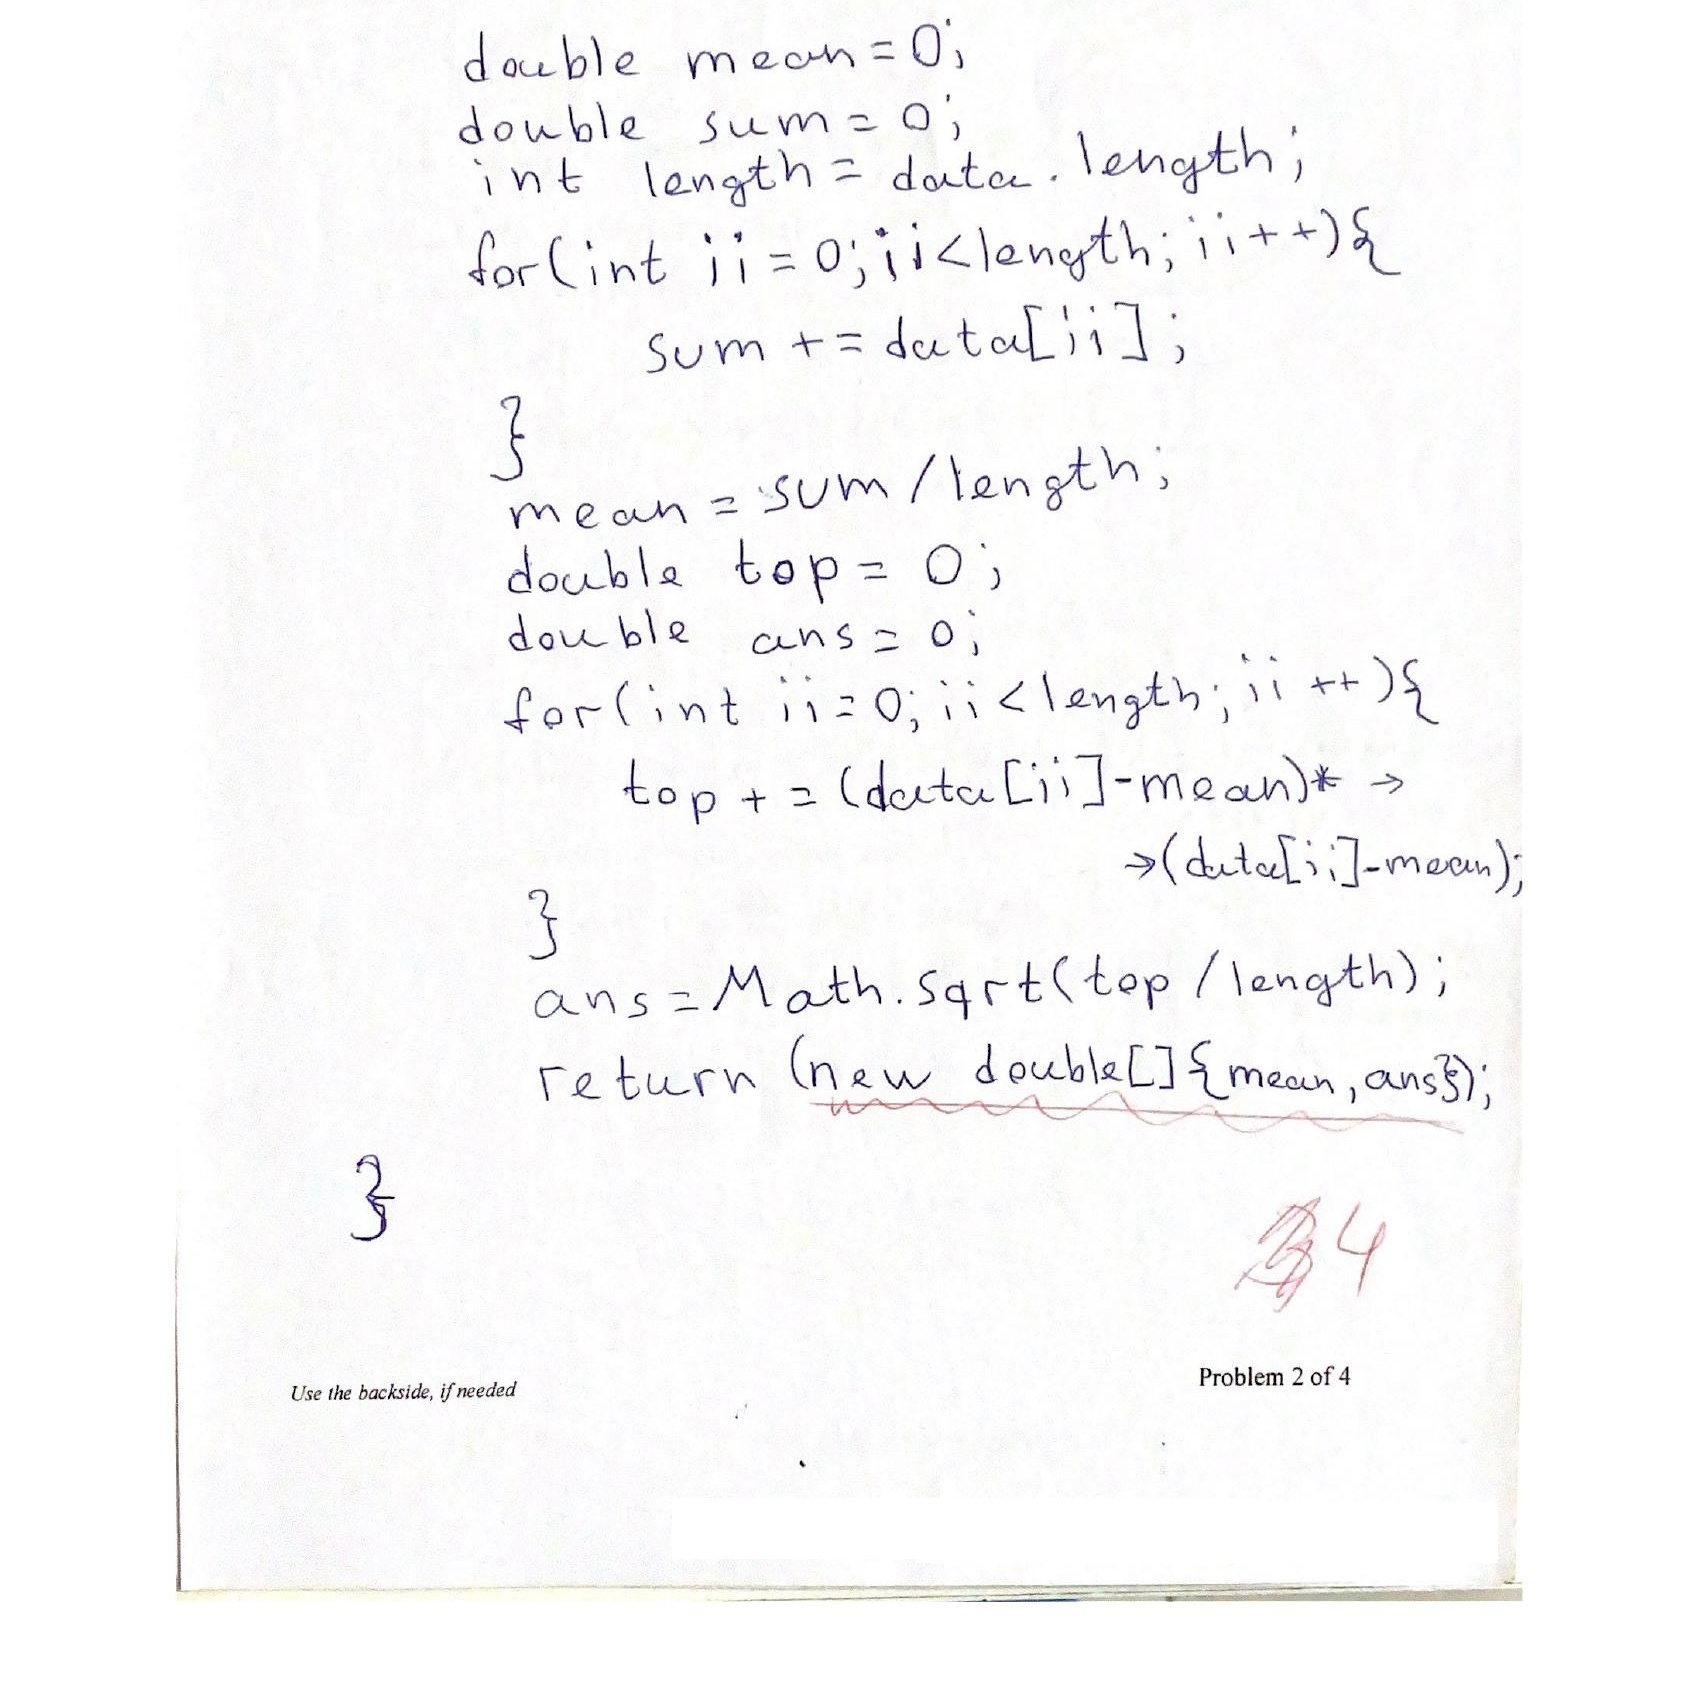 double mean=0;
double sum=0;
int length=data.length;
for(int ii=0;ii<length;ii++){
sum +=data[ii];
}
mean=sum/length;
double top=0;
double ans=0;
for(int ii=0;ii<length;ii++){
top +=(data[ii]-mean)*→
→(data[ii]-mean);
}
ans=Math.sqrt(top/length);
return (new double[]{mean,ans});
}
4
Use the backside, if needed
Problem 2 of 4